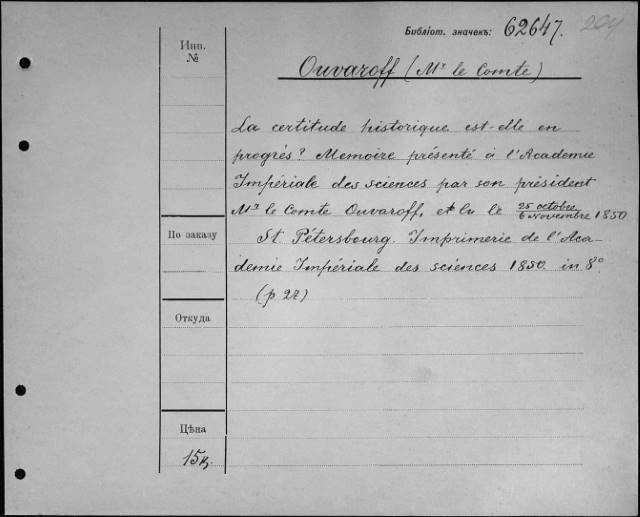 Библіот. значекъ: 62647. 204
Инв.
№
Ouvaroff (Mr le Comte)
La certitude historique est-elle en
progrès? Memoire présenté à l'Academie
Impériale des sciences par son président
Mr le Comte Ouvaroff, et lu le 25 octobre / 6 novembre 1850
По заказу
St. Pétersbourg. Imprimerie de l'Aca-
demie Impériale des sciences 1850 in 8°
(p 27)
Откуда
Цѣна
15к.